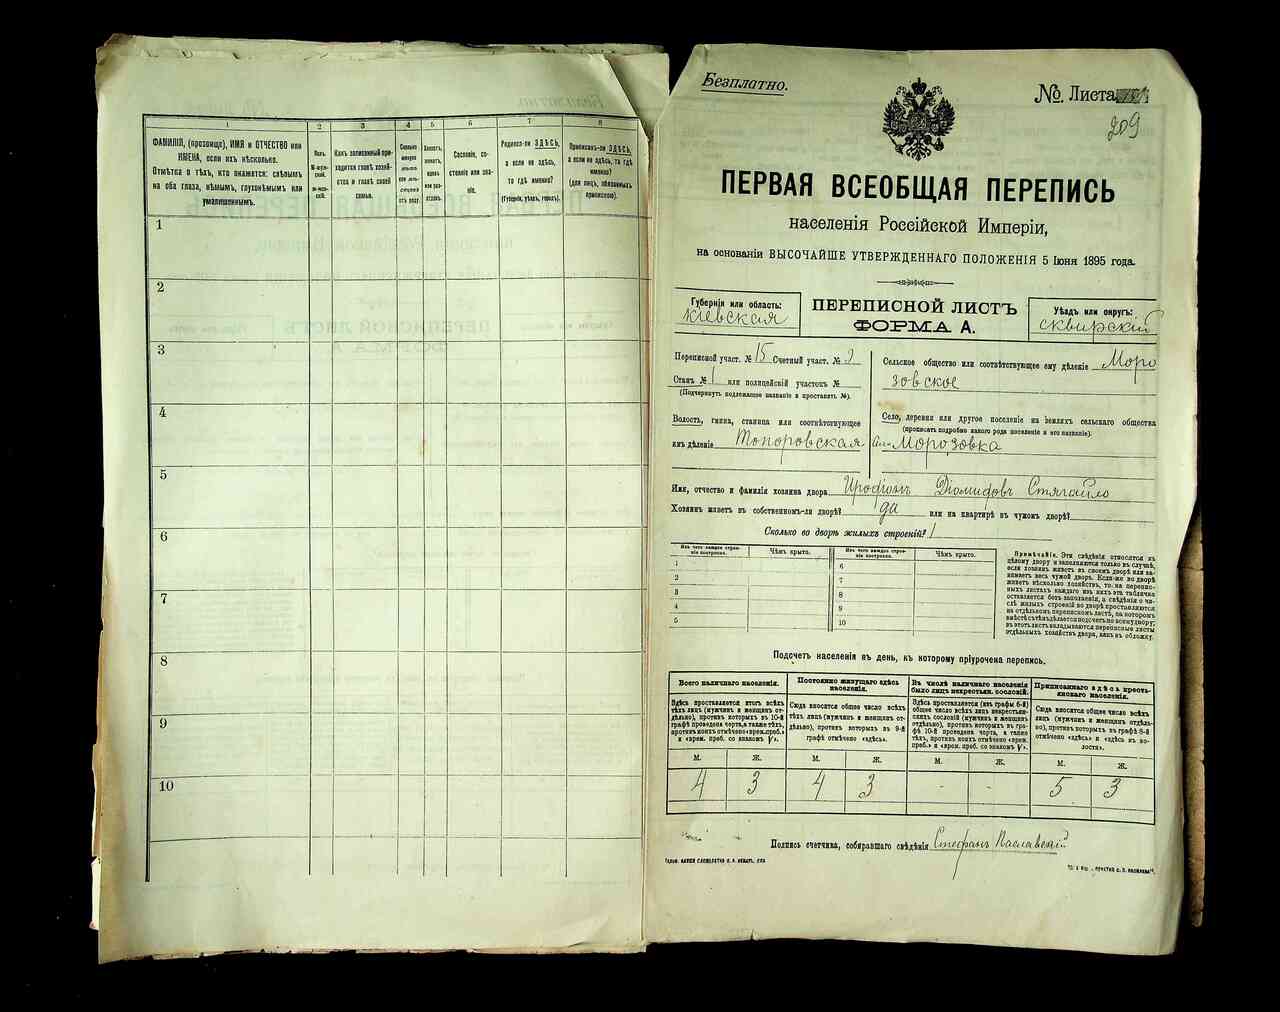 1
2
3
4
5
6
7
8
ФАМИЛІЯ, (прозвище), ИМЯ и ОТЧЕСТВО или
ИМЕНА, если ихъ нѣсколько.
Отмѣтка о тѣхъ, кто окажется: слѣпымъ
на оба глаза, нѣмымъ, глухонѣмымъ или
умалишеннымъ.
Полъ.
М-муж-
ской.
Ж-жен-
скій.
Какъ записанный при-
ходится главѣ хозяй-
ства и главѣ своей
семьи.
Сколько
минуло
лѣтъ
или мѣ-
сяцевъ
отъ роду.
Холостъ,
женатъ,
вдовъ
или раз-
веденъ.
Сословіе, со-
стояніе или зва-
ніе.
Родился-ли ЗДѢСЬ,
а если не здѣсь,
то гдѣ именно?
(Губернія, уѣздъ, городъ).
Приписанъ-ли ЗДѢСЬ,
а если не здѣсь, то гдѣ
именно?
(для лицъ, обязанныхъ
припискою).
1
2
3
4
5
6
7
8
9
10
Безплатно.
№ Листа
209
ПЕРВАЯ ВСЕОБЩАЯ ПЕРЕПИСЬ
населенія Россійской Имперіи,
на основаніи ВЫСОЧАЙШЕ УТВЕРЖДЕННАГО ПОЛОЖЕНІЯ 5 Іюня 1895 года.
Губернія или область:
Кіевская
ПЕРЕПИСНОЙ ЛИСТЪ
ФОРМА А.
Уѣздъ или округъ:
Сквирскій
Переписной участ. № 15 Счетный участ. № 2
Станъ № 1 или полицейскій участокъ №
(Подчеркнуть подлежащее названіе и проставить №).
Волость, гмина, станица или соотвѣтствующее
имъ дѣленіе Топоровская
Сельское общество или соотвѣтствующее ему дѣленіе Моро
зовское
Село, деревня или другое поселеніе на земляхъ сельскаго общества
(прописать подробно какого рода поселеніе и его названіе).
Морозовка
Имя, отчество и фамилія хозяина двора Ирофіонъ Діомидовъ Стягайло
Хозяинъ живетъ въ собственномъ-ли дворѣ? да или на квартирѣ въ чужомъ дворѣ?
Сколько во дворѣ жилыхъ строеній? 1
Изъ чего каждое строе-
ніе построено.
Чѣмъ крыто.
Изъ чего каждое строе-
ніе построено.
Чѣмъ крыто.
1
2
3
4
5
6
7
8
9
10
Примѣчаніе. Эти свѣдѣнія относятся къ
цѣлому двору и заполняются только въ случаѣ,
если хозяинъ живетъ въ своемъ дворѣ или за-
нимаетъ весь чужой дворъ. Если-же во дворѣ
живетъ нѣсколько хозяйствъ, то на перепис-
ныхъ листахъ каждаго изъ нихъ эта табличка
оставляется безъ заполненія, а свѣдѣнія о чи-
слѣ жилыхъ строеній во дворѣ проставляются
на отдѣльномъ переписномъ листѣ, на которомъ
вмѣстѣ съ тѣмъ дѣлается подсчетъ по всему двору;
въ этотъ листъ вкладываются переписные листы
отдѣльныхъ хозяйствъ двора, какъ въ обложку.
Подсчетъ населенія въ день, къ которому пріурочена перепись.
Всего наличнаго населенія.
Здѣсь проставляется итогъ всѣхъ
тѣхъ лицъ (мужчинъ и женщинъ от-
дѣльно), противъ которыхъ въ 10-й
графѣ проведена черта, а также тѣхъ,
противъ коихъ отмѣчено «врем. преб.»
и «врем. преб. со знакомъ V».
Постоянно живущаго здѣсь
населенія.
Сюда вносится общее число всѣхъ
тѣхъ лицъ (мужчинъ и женщинъ от-
дѣльно), противъ которыхъ въ 9-й
графѣ отмѣчено «здѣсь».
Въ числѣ наличнаго населенія
было лицъ некрестьян. сословій.
Здѣсь проставляется (изъ графы 6-й)
общее число всѣхъ лицъ некрестьян-
скихъ сословій (мужчинъ и женщинъ
отдѣльно), противъ которыхъ въ гра-
фѣ 10-й проведена черта, а также
тѣхъ, противъ коихъ отмѣчено «врем.
преб.» и «врем. преб. со знакомъ V».
Приписаннаго здѣсь кресть-
янскаго населенія.
Сюда вносится общее число всѣхъ
лицъ (мужчинъ и женщинъ отдѣль-
но), противъ которыхъ въ графѣ 8-й
отмѣчено «здѣсь» и «здѣсь въ во-
лости».
М. Ж. М. Ж. М. Ж. М. Ж.
4 3 4 3 - - 5 3
Подпись счетчика, собиравшаго свѣдѣнія Стефанъ Паславскій